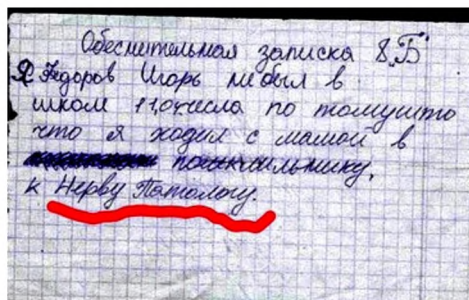 Обеснительная записка 8„Б"
Я Федоров Игорь небыл в
школе 11,04числа по томушто
что я ходил с мамой в
к Нерву Патологу.